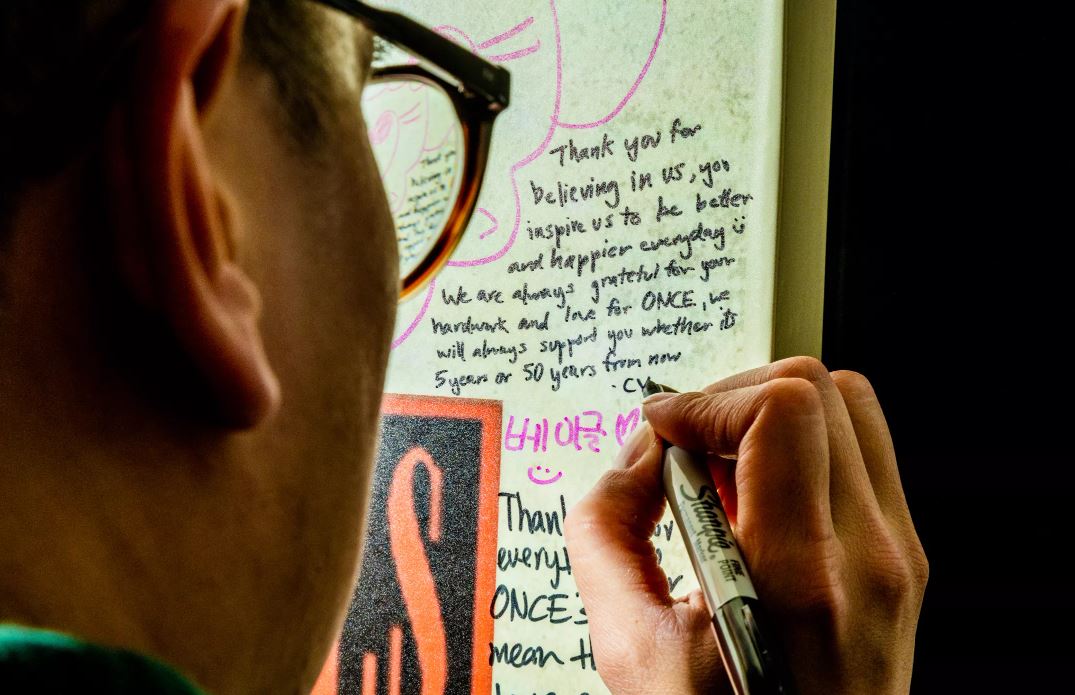 Thank you for
believing in us, you
inspire us to be better
and happier everyday
We are always grateful for your
hardwork and love for ONCE, we
will always support you whether it's
5 years or 50 years from now
- CY
베이글
Thank
everyt
ONCE
mean th
S
Sharpie
FINE
POINT